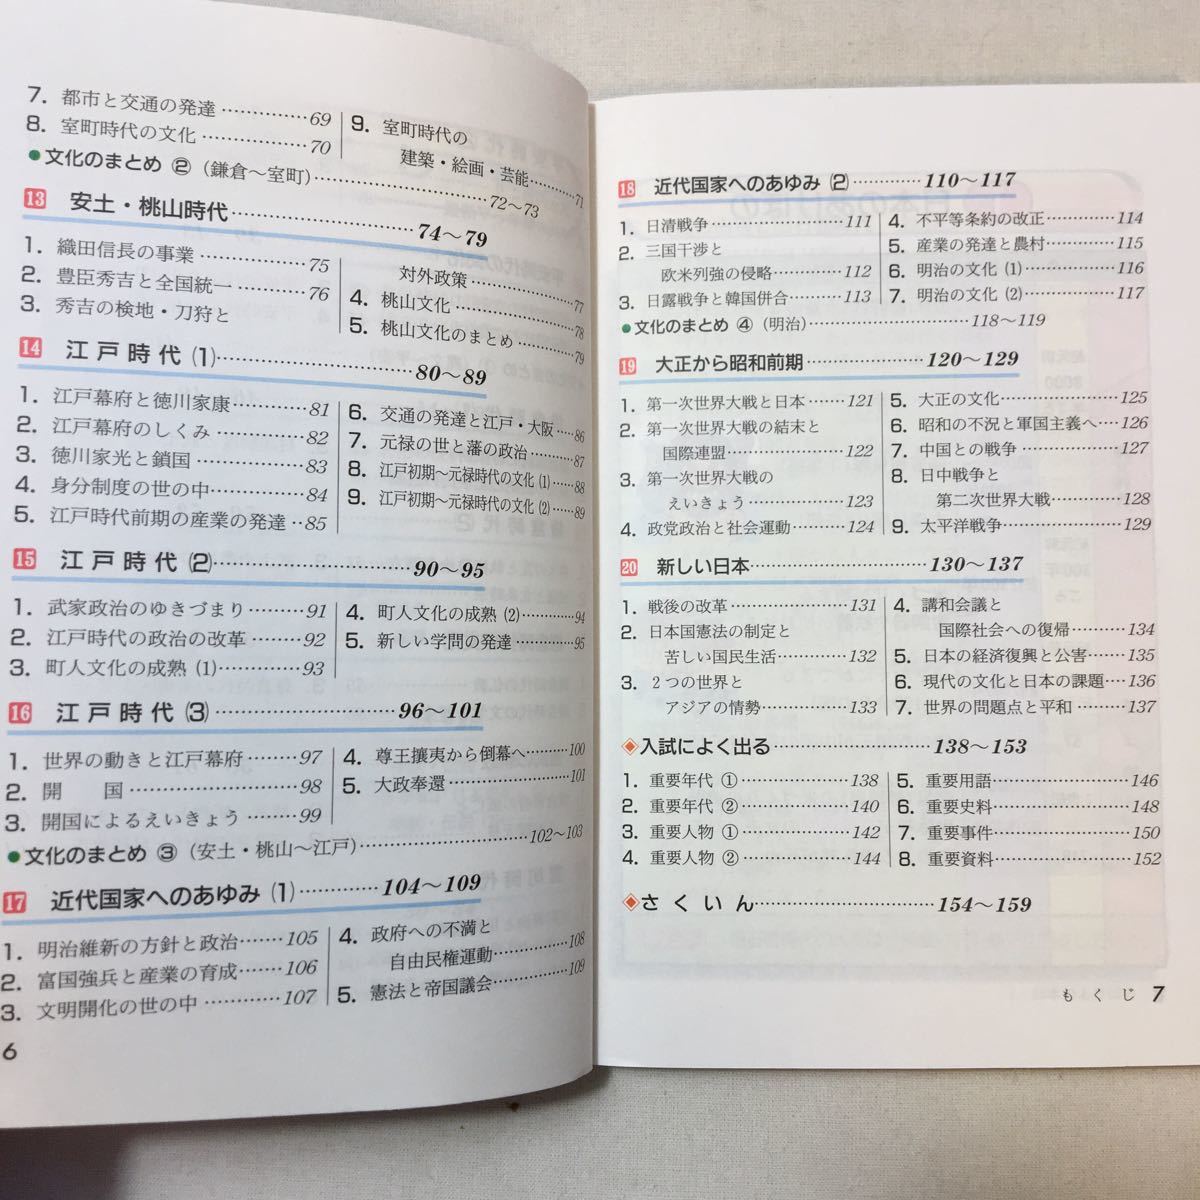 7. 都市と交通の発達……………69
8. 室町時代の文化……………70
9. 室町時代の
建築・絵画・芸能………71
●文化のまとめ ②(鎌倉〜室町)……………………72〜73
13 安土・桃山時代……………………74〜79
1. 織田信長の事業……………75
2. 豊臣秀吉と全国統一……76
3. 秀吉の検地・刀狩と
対外政策……………77
4. 桃山文化……………78
5. 桃山文化のまとめ………79
14 江戸時代 (1)……………………80〜89
1. 江戸幕府と徳川家康………81
2. 江戸幕府のしくみ…………82
3. 徳川家光と鎖国……………83
4. 身分制度の世の中…………84
5. 江戸時代前期の産業の発達‥85
6. 交通の発達と江戸・大阪…86
7. 元禄の世と藩の政治………87
8. 江戸初期〜元禄時代の文化(1)…88
9. 江戸初期〜元禄時代の文化(2)…89
15 江戸時代 (2)……………………90〜95
1. 武家政治のゆきづまり……91
2. 江戸時代の政治の改革……92
3. 町人文化の成熟 (1)…………93
4. 町人文化の成熟 (2)………94
5. 新しい学問の発達…………95
16 江戸時代 (3)……………………96〜101
1. 世界の動きと江戸幕府……97
2. 開 国……………………98
3. 開国によるえいきょう……99
4. 尊王攘夷から倒幕へ………100
5. 大政奉還……………101
●文化のまとめ ③(安土・桃山〜江戸)……………………102〜103
17 近代国家へのあゆみ (1)…………104〜109
1. 明治維新の方針と政治……105
2. 富国強兵と産業の育成……106
3. 文明開化の世の中…………107
4. 政府への不満と
自由民権運動………108
5. 憲法と帝国議会…………109
6
18 近代国家へのあゆみ (2)…………110〜117
1. 日清戦争……………………111
2. 三国干渉と
欧米列強の侵略…………112
3. 日露戦争と韓国併合………113
4. 不平等条約の改正…………114
5. 産業の発達と農村…………115
6. 明治の文化 (1)……………116
7. 明治の文化 (2)……………117
●文化のまとめ ④(明治)……………………118〜119
19 大正から昭和前期…………………120〜129
1. 第一次世界大戦と日本……121
2. 第一次世界大戦の結末と
国際連盟……………122
3. 第一次世界大戦の
えいきょう……………123
4. 政党政治と社会運動………124
5. 大正の文化…………………125
6. 昭和の不況と軍国主義へ…126
7. 中国との戦争………………127
8. 日中戦争と
第二次世界大戦………128
9. 太平洋戦争…………………129
20 新しい日本……………………130〜137
1. 戦後の改革…………………131
2. 日本国憲法の制定と
苦しい国民生活…………132
3. 2つの世界と
アジアの情勢……………133
4. 講和会議と
国際社会への復帰………134
5. 日本の経済復興と公害……135
6. 現代の文化と日本の課題…136
7. 世界の問題点と平和………137
◈入試によく出る……………………138〜153
1. 重要年代 ①………………138
2. 重要年代 ②………………140
3. 重要人物 ①………………142
4. 重要人物 ②………………144
5. 重要用語……………………146
6. 重要史料……………………148
7. 重要事件……………………150
8. 重要資料……………………152
◈さ く い ん……………………154〜159
も く じ 7